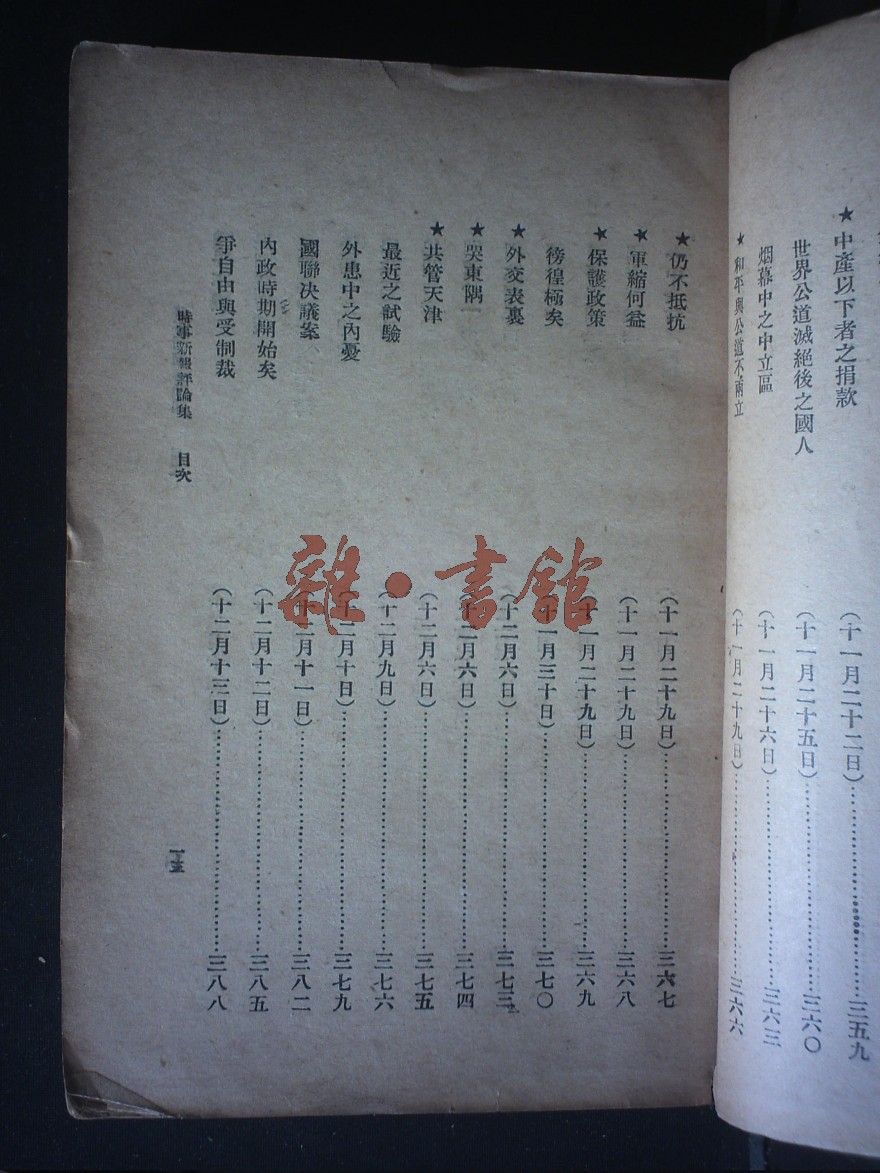 ★中產以下者之捐款 (十一月二十二日)……三五九
世界公道滅絕後之國人 (十一月二十五日)……三六〇
烟幕中之中立區 (十一月二十六日)……三六三
★和平與公道不兩立 (十一月二十九日)……三六六
★仍不抵抗 (十一月二十九日)……三六七
★軍縮何益 (十一月二十九日)……三六八
★保護政策 (十一月二十九日)……三六九
徬徨極矣 (十一月三十日)……三七〇
★外交表裏 (十二月六日)……三七三
★哭東隅 (十二月六日)……三七四
★共管天津 (十二月六日)……三七五
最近之試驗 (十二月九日)……三七六
外患中之內憂 (十二月十日)……三七九
國聯決議案 (十二月十一日)……三八二
內政時期開始矣 (十二月十二日)……三八五
爭自由與受制裁 (十二月十三日)……三八八
時事新報評論集 目次
一五
雜·書館